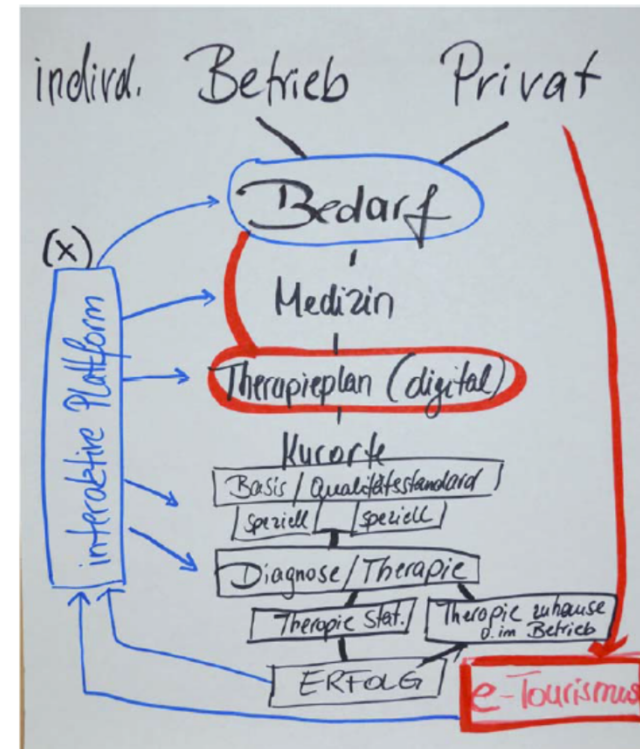 individ. Betrieb Privat
Bedarf
(x)
Medizin
interaktive Plattform
Therapieplan (digital)
Kurorte
Basis / Qualitätsstandard
speziell speziell
Diagnose/Therapie
Therapie Stat.
Therapie zuhause
o. im Betrieb
ERFOLG
e-Tourismus